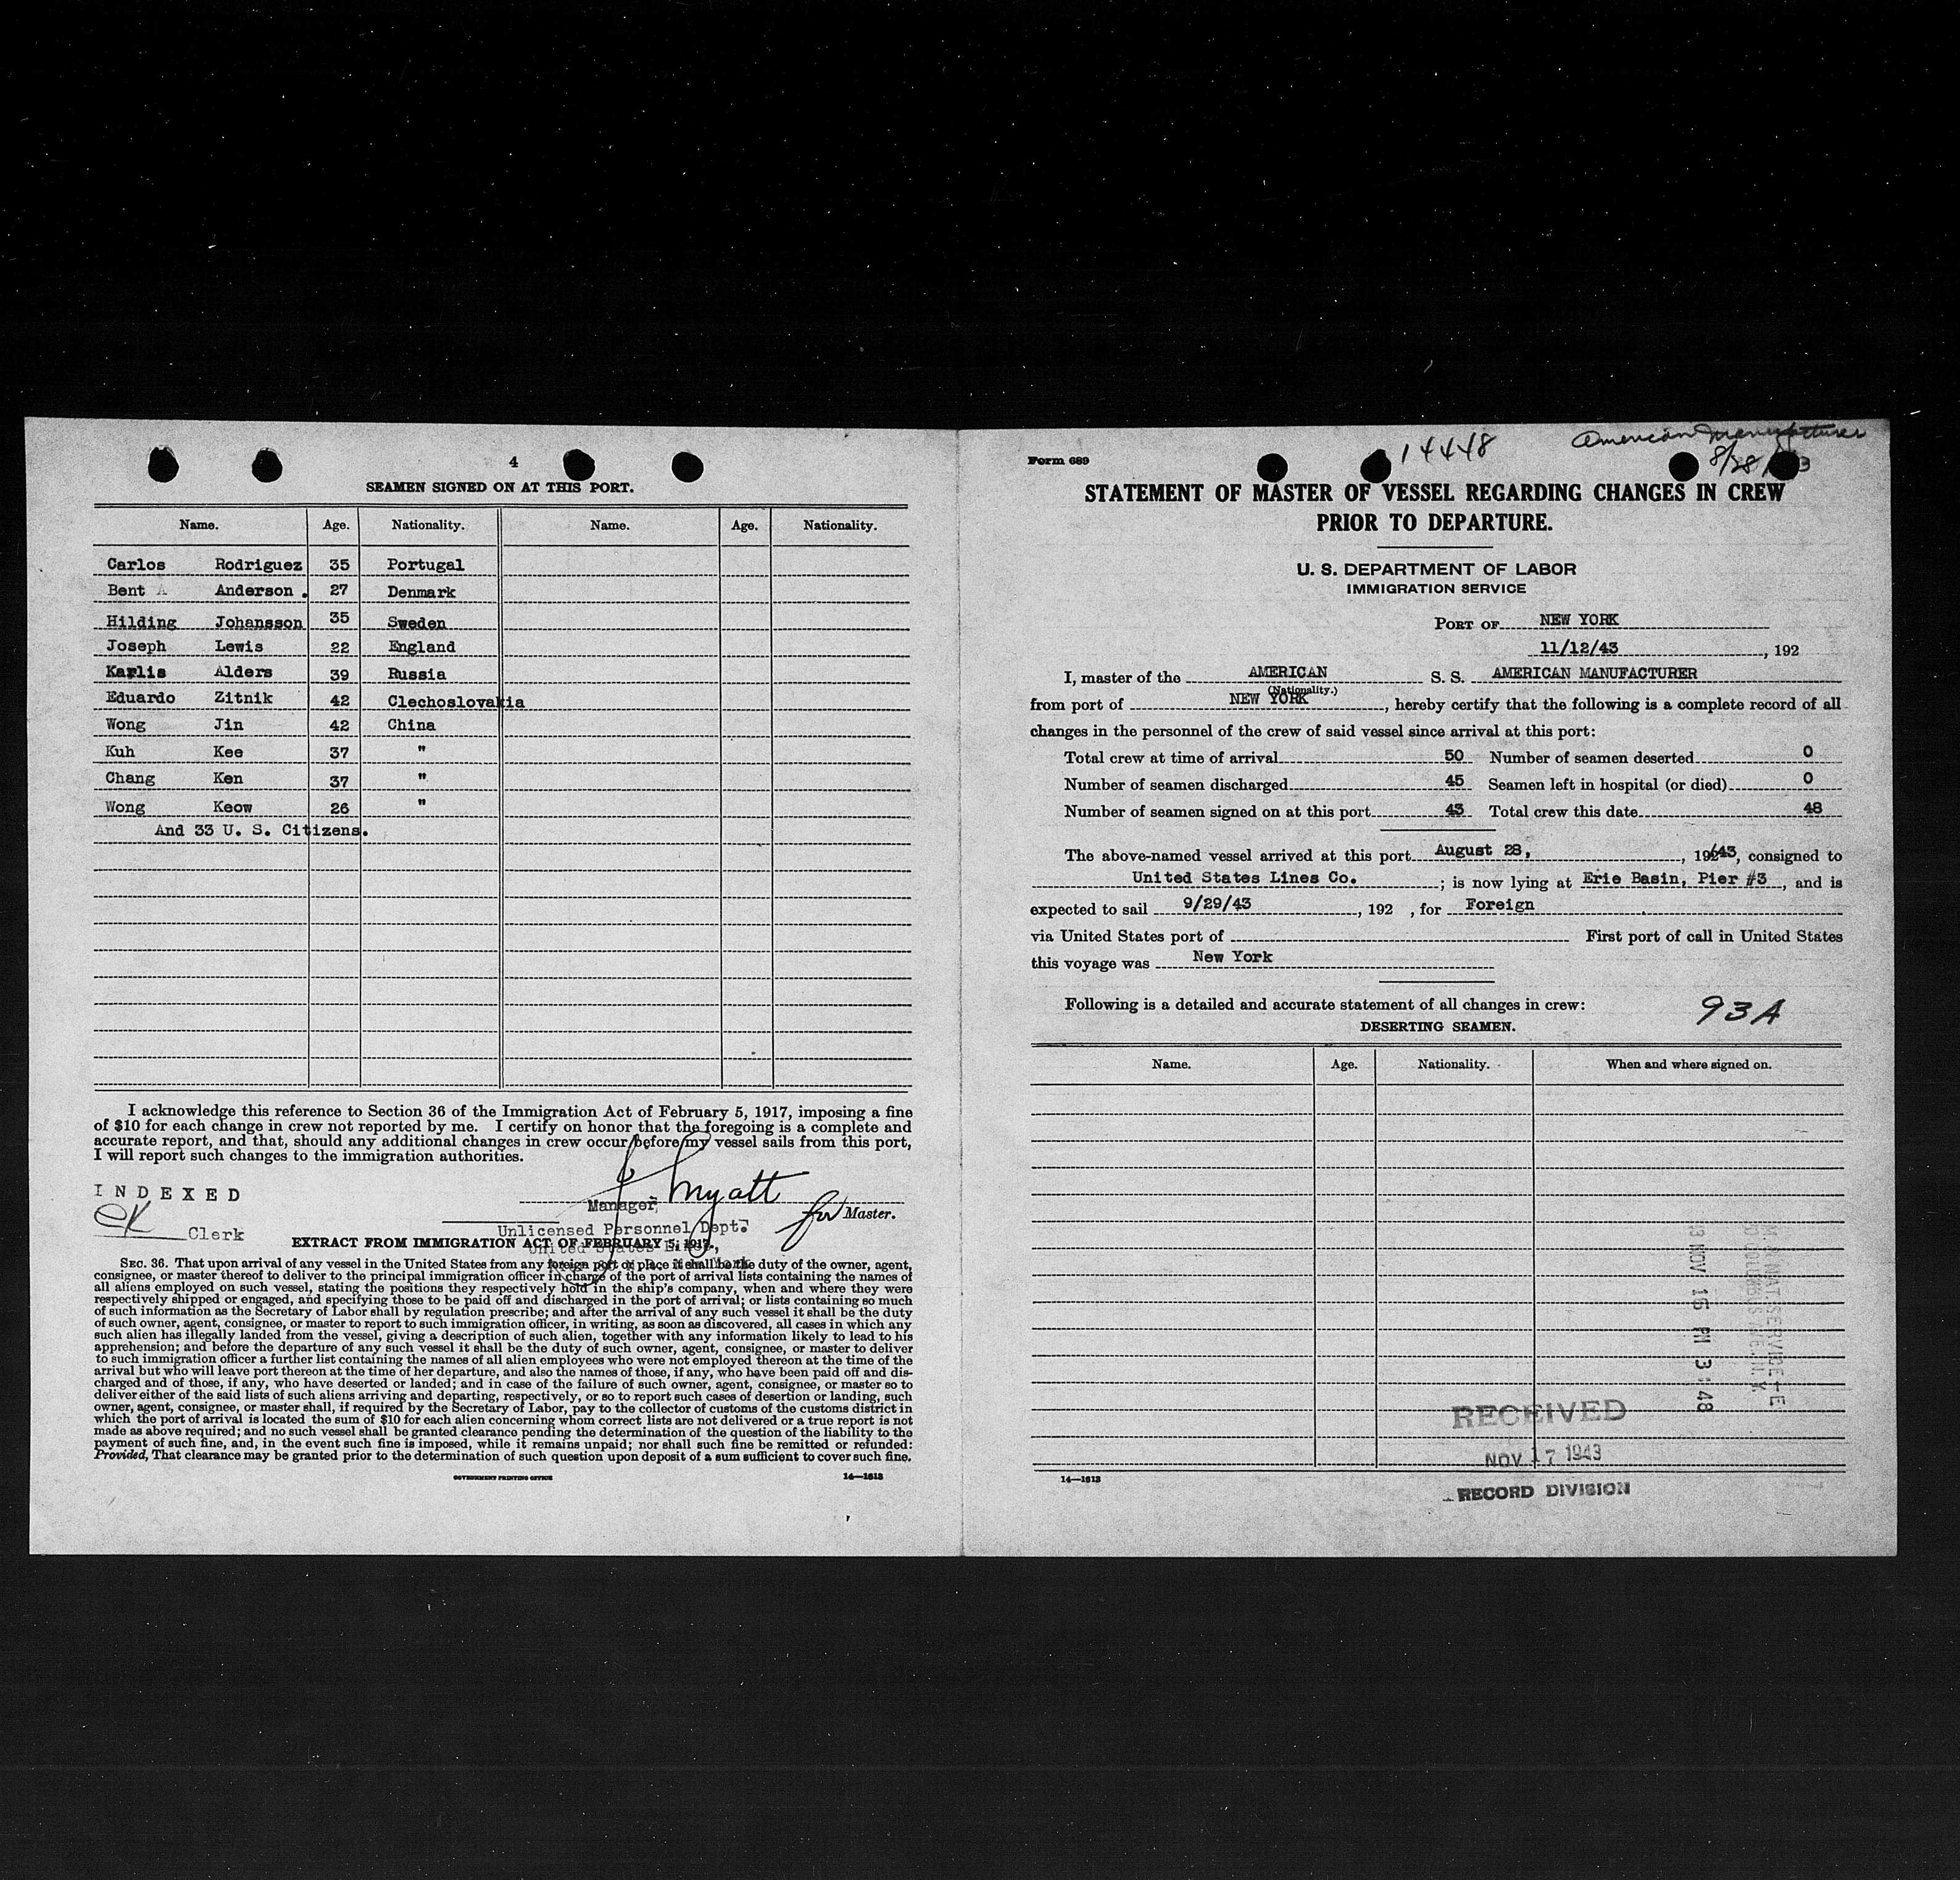 4
SEAMEN SIGNED ON AT THIS PORT.
Name. Age. Nationality. Name. Age. Nationality.
Carlos Rodriguez 35 Portugal
Bent A Anderson. 27 Denmark
Hilding Johansson 35 Sweden
Joseph Lewis 22 England
Karlis Alders 39 Russia
Eduardo Zitnik 42 Clechoslovakia
Wong Jin 42 China
Kuh Kee 37 "
Chang Ken 37 "
Wong Keow 26 "
And 33 U. S. Citizens.
I acknowledge this reference to Section 36 of the Immigration Act of February 5, 1917, imposing a fine
of $10 for each change in crew not reported by me. I certify on honor that the foregoing is a complete and
accurate report, and that, should any additional changes in crew occur before my vessel sails from this port,
I will report such changes to the immigration authorities.
INDEXED
Myatt
Manager,
for Master.
Clerk
Unlicensed Personnel Dept.
EXTRACT FROM IMMIGRATION ACT OF FEBRUARY 5, 1917.
United States Lines,
SEC. 36. That upon arrival of any vessel in the United States from any foreign port or place it shall be the duty of the owner, agent,
consignee, or master thereof to deliver to the principal immigration officer in charge of the port of arrival lists containing the names of
all aliens employed on such vessel, stating the positions they respectively hold in the ship's company, when and where they were
respectively shipped or engaged, and specifying those to be paid off and discharged in the port of arrival; or lists containing so much
of such information as the Secretary of Labor shall by regulation prescribe; and after the arrival of any such vessel it shall be the duty
of such owner, agent, consignee, or master to report to such immigration officer, in writing, as soon as discovered, all cases in which any
such alien has illegally landed from the vessel, giving a description of such alien, together with any information likely to lead to his
apprehension; and before the departure of any such vessel it shall be the duty of such owner, agent, consignee, or master to deliver
to such immigration officer a further list containing the names of all alien employees who were not employed thereon at the time of the
arrival but who will leave port thereon at the time of her departure, and also the names of those, if any, who have been paid off and dis-
charged and of those, if any, who have deserted or landed; and in case of the failure of such owner, agent, consignee, or master so to
deliver either of the said lists of such aliens arriving and departing, respectively, or so to report such cases of desertion or landing, such
owner, agent, consignee, or master shall, if required by the Secretary of Labor, pay to the collector of customs of the customs district in
which the port of arrival is located the sum of $10 for each alien concerning whom correct lists are not delivered or a true report is not
made as above required; and no such vessel shall be granted clearance pending the determination of the question of the liability to the
payment of such fine, and, in the event such fine is imposed, while it remains unpaid; nor shall such fine be remitted or refunded:
Provided, That clearance may be granted prior to the determination of such question upon deposit of a sum sufficient to cover such fine.
GOVERNMENT PRINTING OFFICE 14—1613
Form 689
14448
American Manufacturer
8/28/43
STATEMENT OF MASTER OF VESSEL REGARDING CHANGES IN CREW
PRIOR TO DEPARTURE.
U. S. DEPARTMENT OF LABOR
IMMIGRATION SERVICE
PORT OF NEW YORK
11/12/43, 192
I, master of the AMERICAN S. S. AMERICAN MANUFACTURER
(Nationality.)
from port of NEW YORK, hereby certify that the following is a complete record of all
changes in the personnel of the crew of said vessel since arrival at this port:
Total crew at time of arrival 50 Number of seamen deserted 0
Number of seamen discharged 45 Seamen left in hospital (or died) 0
Number of seamen signed on at this port 43 Total crew this date 48
The above-named vessel arrived at this port August 28, 192/43, consigned to
United States Lines Co. ; is now lying at Erie Basin, Pier #3, and is
expected to sail 9/29/43, 192 , for Foreign
via United States port of First port of call in United States
this voyage was New York
Following is a detailed and accurate statement of all changes in crew:
93A
DESERTING SEAMEN.
Name. Age. Nationality. When and where signed on.
NOV 16 PM 3:48
RECEIVED
NOV 17 1943
RECORD DIVISION
14—1613